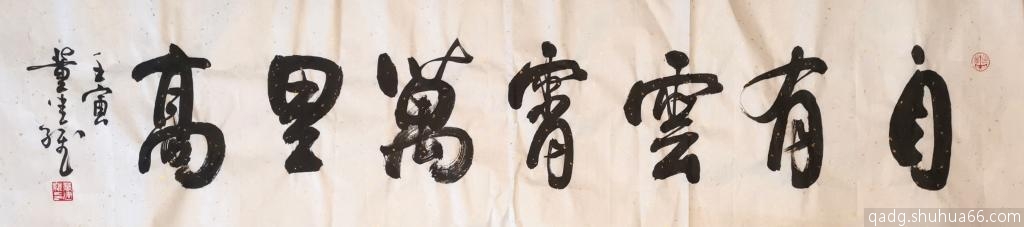 自有雲霄萬里高
壬寅
qadg.shuhua66.com